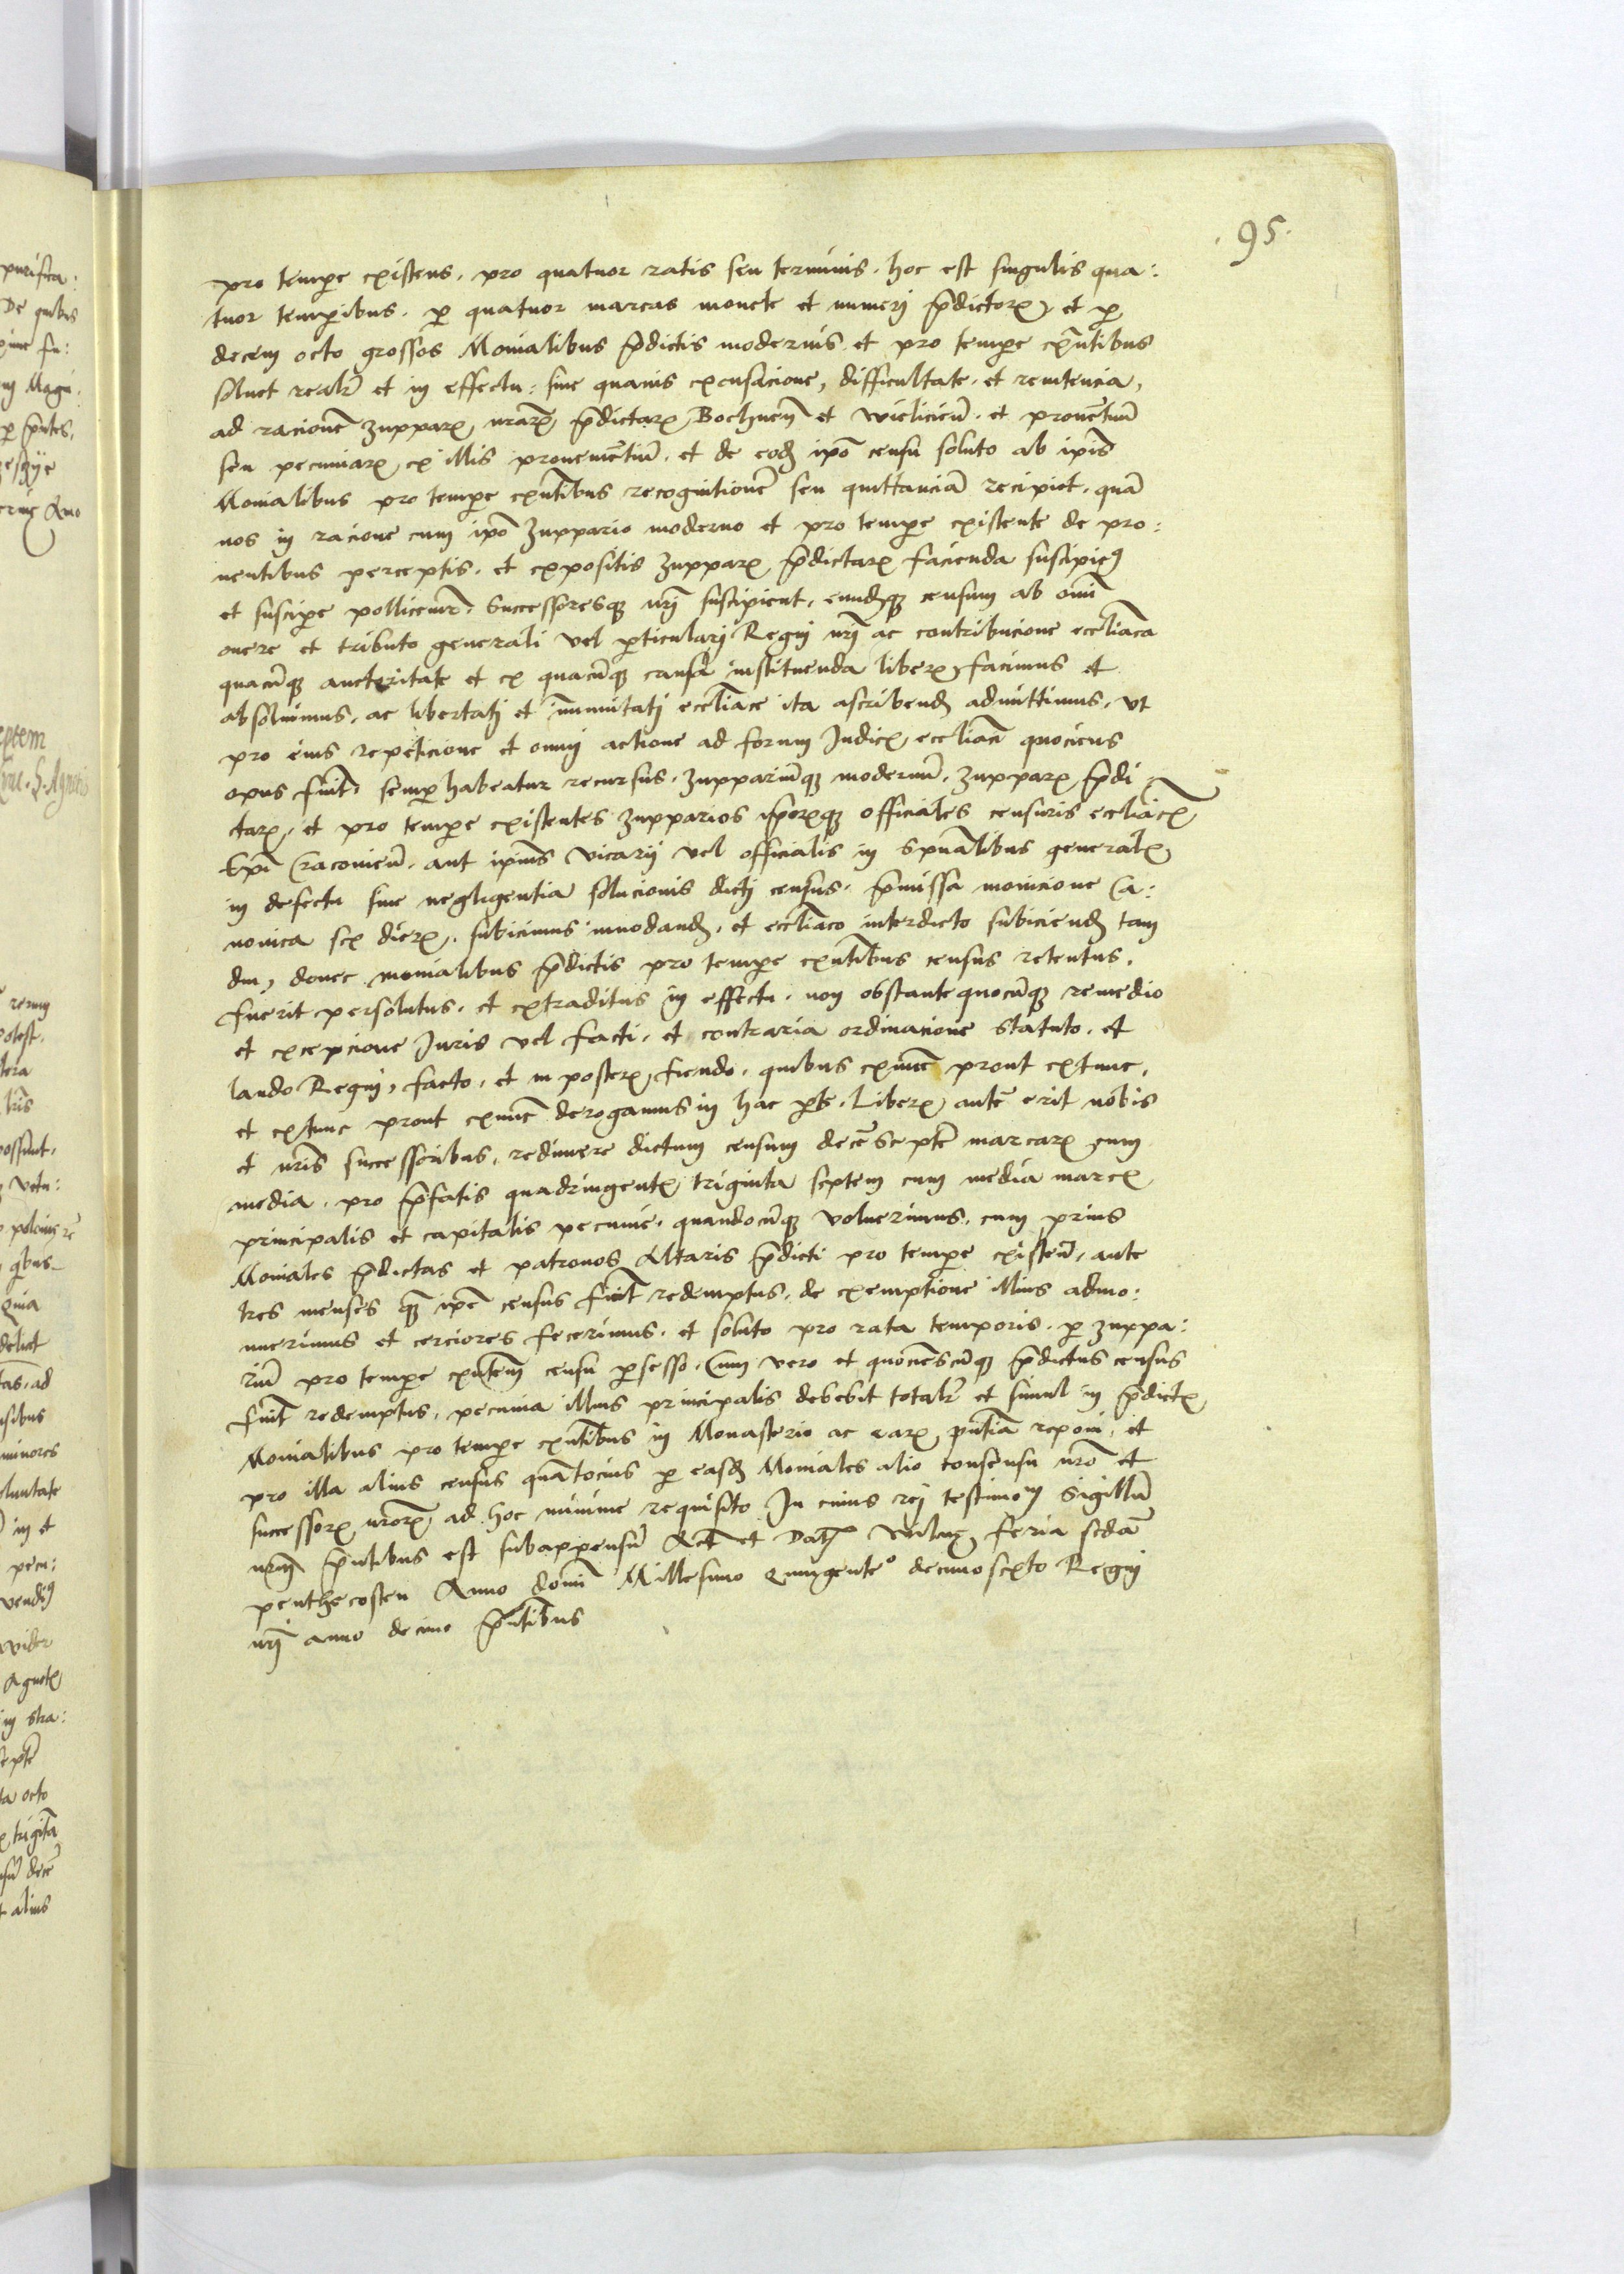 .95.
pro tempore existens. pro quatuor ratis seu terminis. hoc est singulis qua:
tuor temporibus. per quatuor marcas monete et numerj p̄dictorꝝ et per
decem octo grossos Monialibus p̄dictis modernis et pro tempore exn̄tibus
soluet realr̄ et in effectu: sine quauis excusacione, difficultate. et renitencia,
ad racionē zupparꝝ nrārꝝ p̄dictarꝝ Bochneñ et Wieliciēn. et prouētuū
seu pecuniarꝝ ex illis proueniētiū. et de eodꝫ ip̄o censu soluto ab ip̄is
Monialibus pro tempore exn̄tibus recognitionē seu quittanciā recipiet. quā
nos in racione cum ip̄o zuppario moderno et pro tempore existente de pro:
uentibus perceptis. et expositis zupparꝝ p̄dictarꝝ facienda suscipieꝯ
et suscipere pollicemr̄. Successoresqꝫ nr̄j suscipient, eundqꝫ censum ab om̄i
onere et tributo generali vel particularj Regnj nr̄j ac contribucione eccl̄iaca
quacūqꝫ auctoritate et ex quacūqꝫ causa instituenda liberꝝ facimus et
absoluimus, ac libertatj et īmunitatj eccl̄iace ita ascribendꝫ admittimus, vt
pro eius repeticione et omnj actione ad forum Judicꝝ eccl̄iacū quociens
opus fūit. semper habeatur recursus. zuppariūqꝫ modernū. zupparꝝ p̄di
ctarꝝ. et pro tempore existentes zupparios ip̄orꝝqꝫ officiales censuris eccl̄iacꝝ
Ep̄i Cracouieñ. aut ip̄ius vicarij vel officialis in Spūalibus generalꝝ
in defectu siue negligentia solucionis dictj census. p̄missa monicione Ca:
nonica sex dierꝝ. subicimus innodandꝫ, et eccl̄iaco interdicto subiciendꝫ tam
diu, donec monialibus p̄dictis pro tempore exn̄tibus census retentus.
fuerit persolutus. et extraditus in effectu. non obstante quocūqꝫ remedio
et excepcione Juris vel facti. et contraria ordinacione Statuto. et
laudo Regnj, facto. et in posterꝝ fiendo. quibus exnūc prout extunc,
et extunc prout exnūc derogamus in hac parte. Liberꝝ autē erit nobis
et nrīs successoribus. redimere dictum censum decē Septē marcarꝝ cum
media. pro p̄fatis quadringentꝝ triginta septem cum media marcꝝ
principalis et capitalis pecunie. quandocūqꝫ voluerimus. cum prius
Moniales p̄dictas et patronos Altaris p̄dicti pro tempore existeñ. ante
tres menses qꝫ ip̄e census fūit redemptus. de exemptione illius admo:
nuerimus et cerciores fecerimus. et soluto pro rata temporis. per zuppa:
riū pro tempore exn̄tem censu persesso. Cum vero et quociēscūqꝫ p̄dictus census
fūit redemptus, pecunia illius principalis debebit totalr̄ et simul in p̄dictꝝ
Monialibus pro tempore exn̄tibus in Monasterio ac earꝝ pn̄tia reponi, et
pro illa alius census quātocius per easdꝫ Moniales alio consensu nr̄o et
successorꝝ nrōrꝝ ad hoc minime requisito In cuius rej testimoꝫ Sigillū
nrm̄ p̄ntibus est subappensū Act̄ et Dat̄ Vilne feria scdā
penthecosten Anno domī Millesimo Quingente° decimosexto Regnj
nr̄j anno decimo p̄ntibus